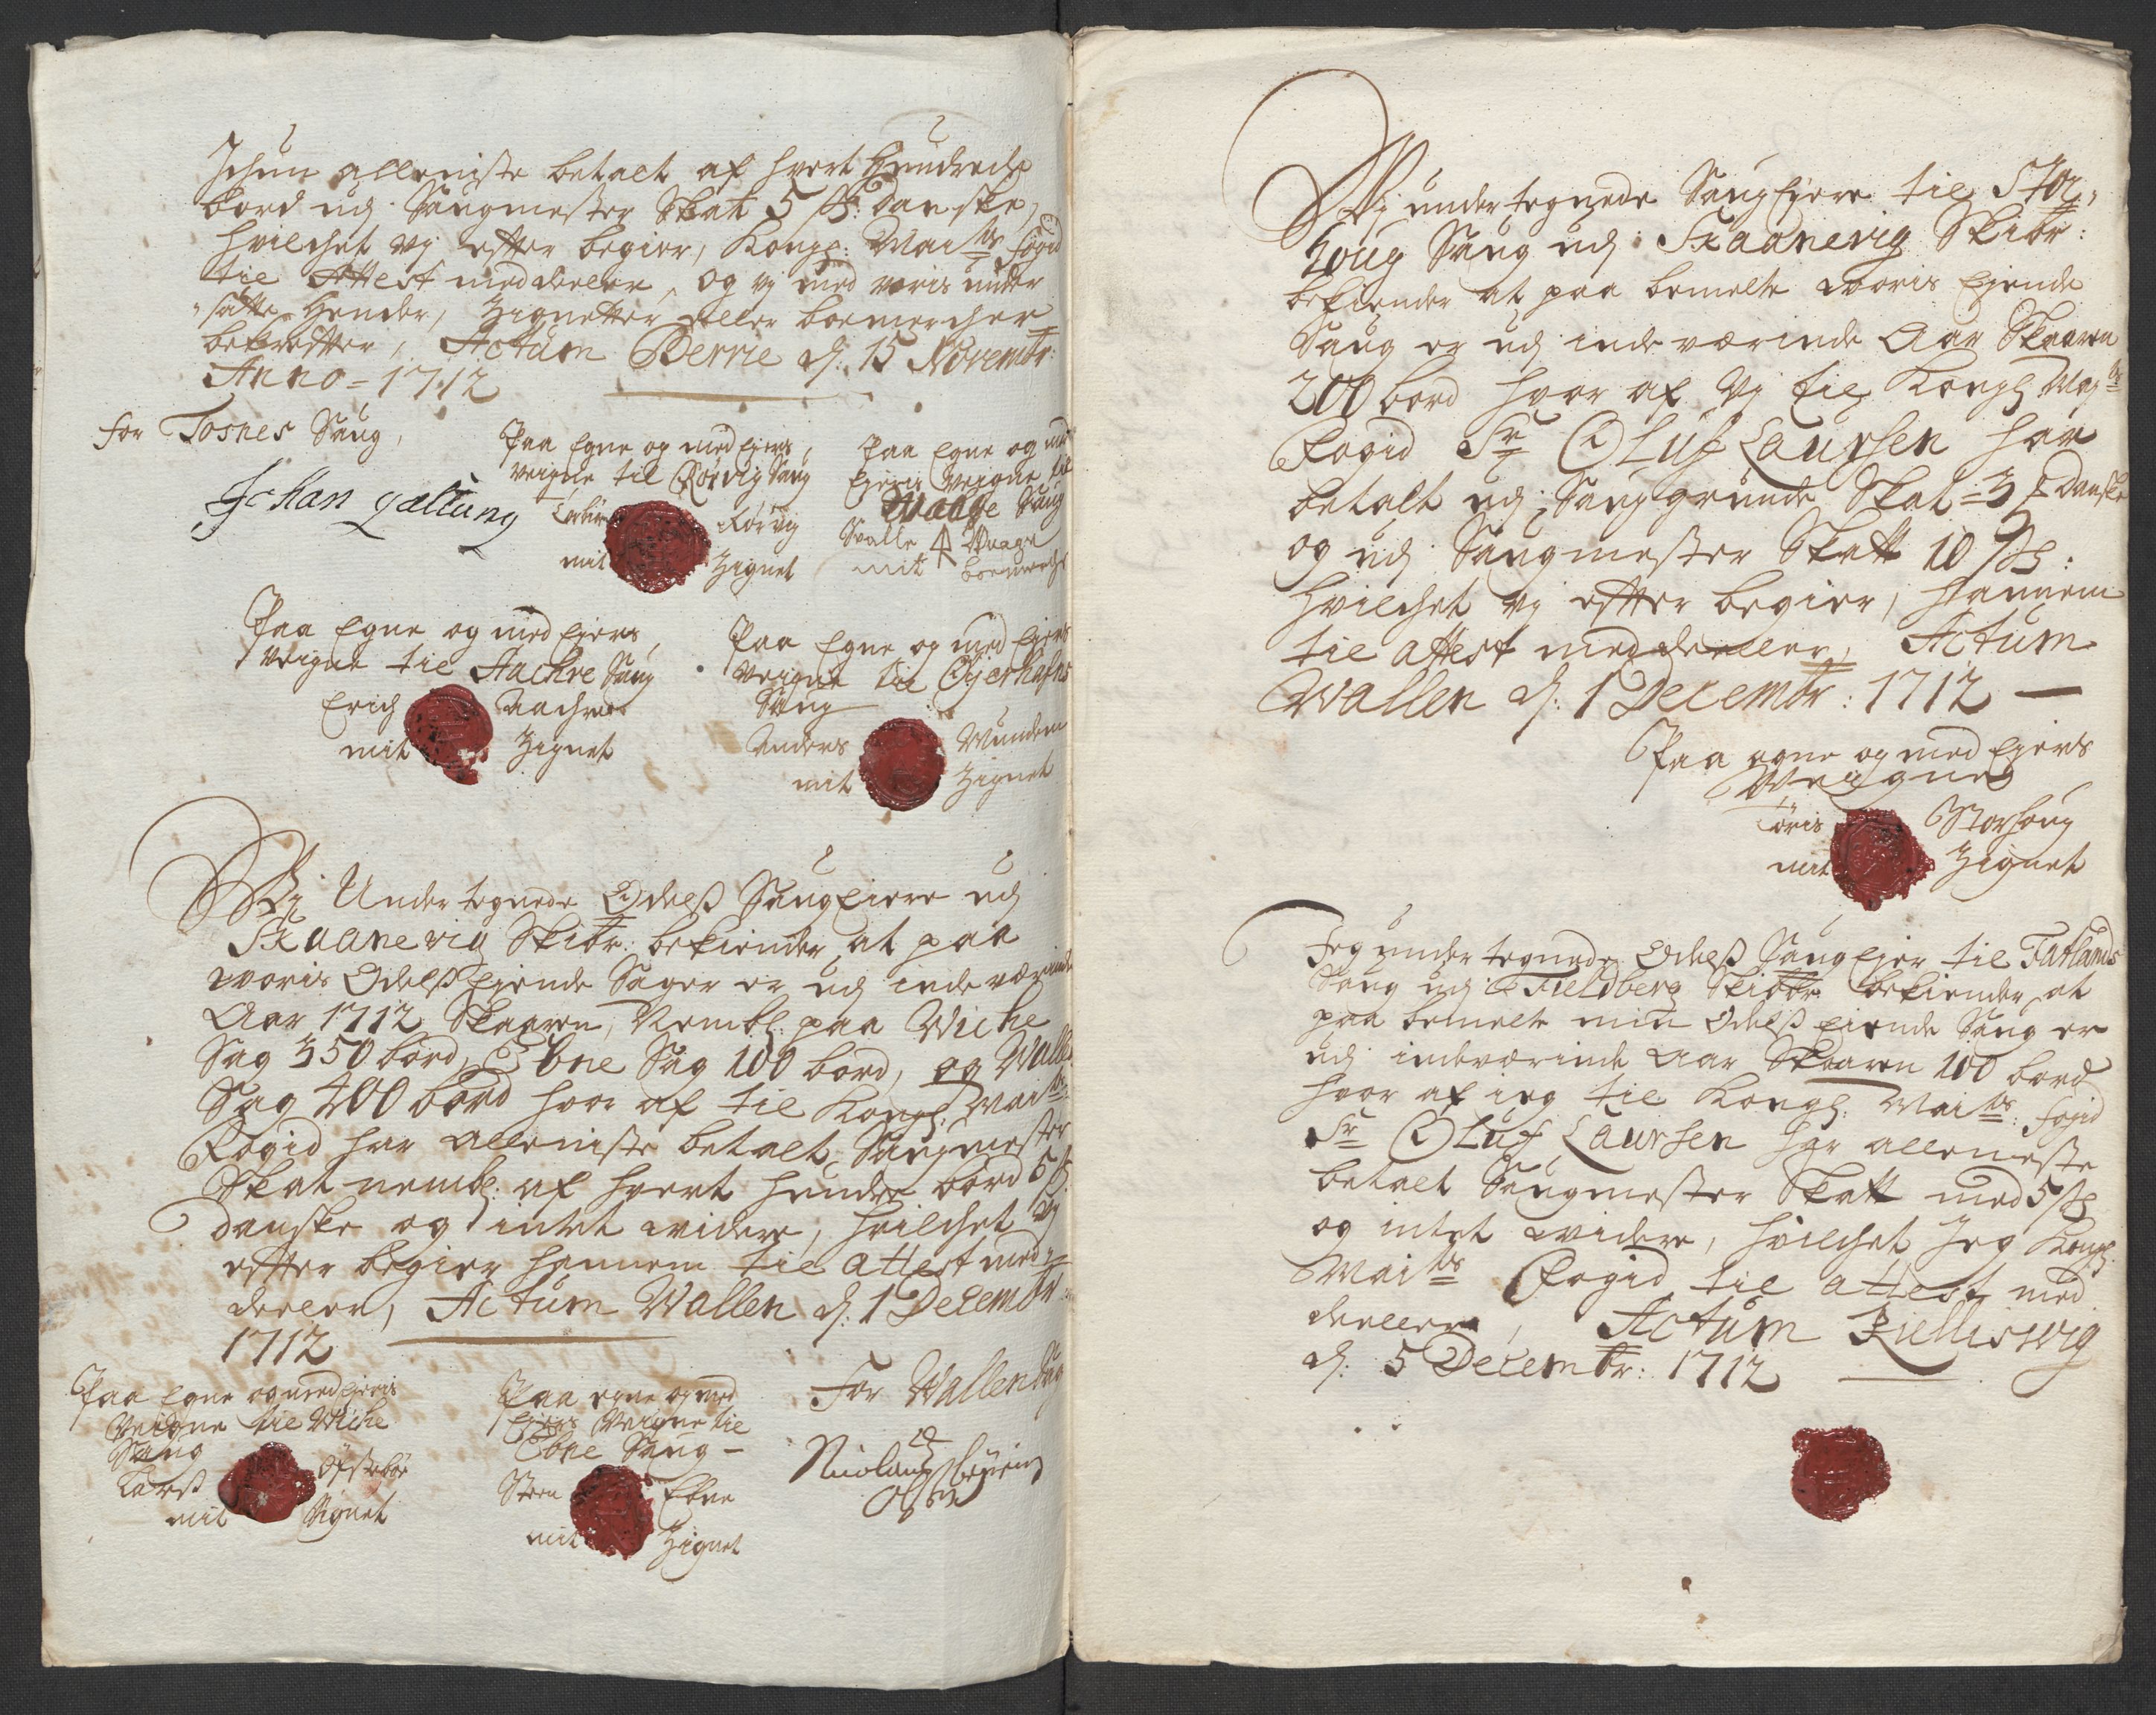 Ichun alleniste betalt af hvert Hundrede
bord udj Saugmester Skat 5 sk: danske,
hvilchet vj efter begier, Kongl: Mai:ts fogid
til Attest meddeeler, og vj med voris under
satte Hender, Zignetter eller boemercher
bekrefter, Actum Berrie d: 15 Novembr:
Anno - 1712
for Tosnes Saug,
Johan Galtung
Paa Egne og med Ejers
veigne til Rørvig Saug
Rørvig
mit Zignet
Paa Egne og med
Ejeris Veigne til
Waage Saug
Waage
mit boemerche
Paa Egne og med Ejers
veigne til Aachre Saug
Erich Aachre
mit Zignet
Paa Egne og med Ejers
veigne til Øjerhafns
Saug
Anders
mit Zignet
Vj Undertegnede Odelß Saugeiere udj
Skaanevig Skibr: bekiender at paa
voris Odelß Ejende Sager er udj indeværende
Aar 1712 Skaaren, Nembl: paa Wiche
Sag 350 bord, Ebne Sag 100 bord, og Walle
Sag 400 bord hvor af til Kongl: Mai:ts
Fogid har alleniste betalt Saugmester
Skat nembl: af hvert hundre bord 5 sk
danske og intet widere, hvilchet vj
efter begier hannem til attest med-
deeler, Actum Wallen d: 1 Decembr:
1712
Paa Egne og med Ejeris
Veigne til Wiche
Saug
Larß
mit Signet
Paa egne og med
Ejers Veigne til
Ebne Saug -
Steen Ebne
mit Zignet
For Wallen Saug
Vj undertegnede Saug Ejere til Stor-
houg Saug udj Skaanevig Skibr:
bekiender at paa bemelte voris Ejende
Saug er udj indeværinde Aar Skaaren
200 bord hvor af Vj til Kongl: Maj:ts
Fogid Sr Oluf Laursen har
betalt udj Saug grunde Skat - 3 danske
og udj Saugmester Skatt 10 sk:
hvilchet vj efter begier, hannem
til attest meddeeler, Actum
Wallen d: 1 Decembr: 1712 —
Paa egne og med Ejers
Veigne
Storhoug
mit Zignet
Jeg undertegnede Odelß Saug Ejer til Fatlands
Saug udj Fieldberg Skibbr: bekiender at
paa bemelte min Odelß Eiende Saug er
udj indeværinde Aar Skaaren 100 bord
hvor af ieg til Kongl: Mai:ts fogid
Sr Oluf Laursen har alleneste
betalt Saugmester Skatt med 5 sk
og intet widere, hvilchet Jeg Kongl:
Mai:ts Fogid til attest med
deeller, Actum Kiellisvig
d: 5 Decembr: 1712